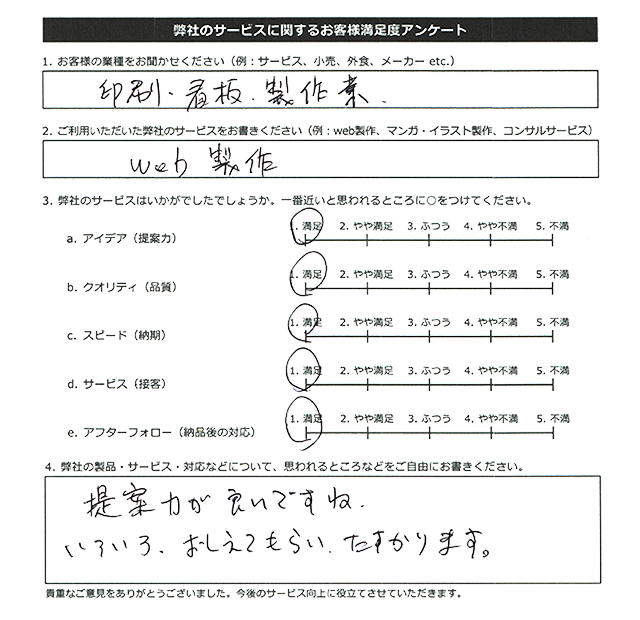 弊社のサービスに関するお客様満足度アンケート
1. お客様の業種をお聞かせください（例：サービス、小売、外食、メーカー etc.）
印刷・看板・製作業.
2. ご利用いただいた弊社のサービスをお書きください（例：web製作、マンガ・イラスト製作、コンサルサービス）
web 製作
3. 弊社のサービスはいかがでしたでしょうか。一番近いと思われるところに○をつけてください。
a. アイデア（提案力） 1. 満足 2. やや満足 3. ふつう 4. やや不満 5. 不満
b. クオリティ（品質） 1. 満足 2. やや満足 3. ふつう 4. やや不満 5. 不満
c. スピード（納期） 1. 満足 2. やや満足 3. ふつう 4. やや不満 5. 不満
d. サービス（接客） 1. 満足 2. やや満足 3. ふつう 4. やや不満 5. 不満
e. アフターフォロー（納品後の対応） 1. 満足 2. やや満足 3. ふつう 4. やや不満 5. 不満
4. 弊社の製品・サービス・対応などについて、思われるところなどをご自由にお書きください。
提案力が良いですね.
いろいろ、おしえてもらい、たすかります。
貴重なご意見をありがとうございました。今後のサービス向上に役立てさせていただきます。